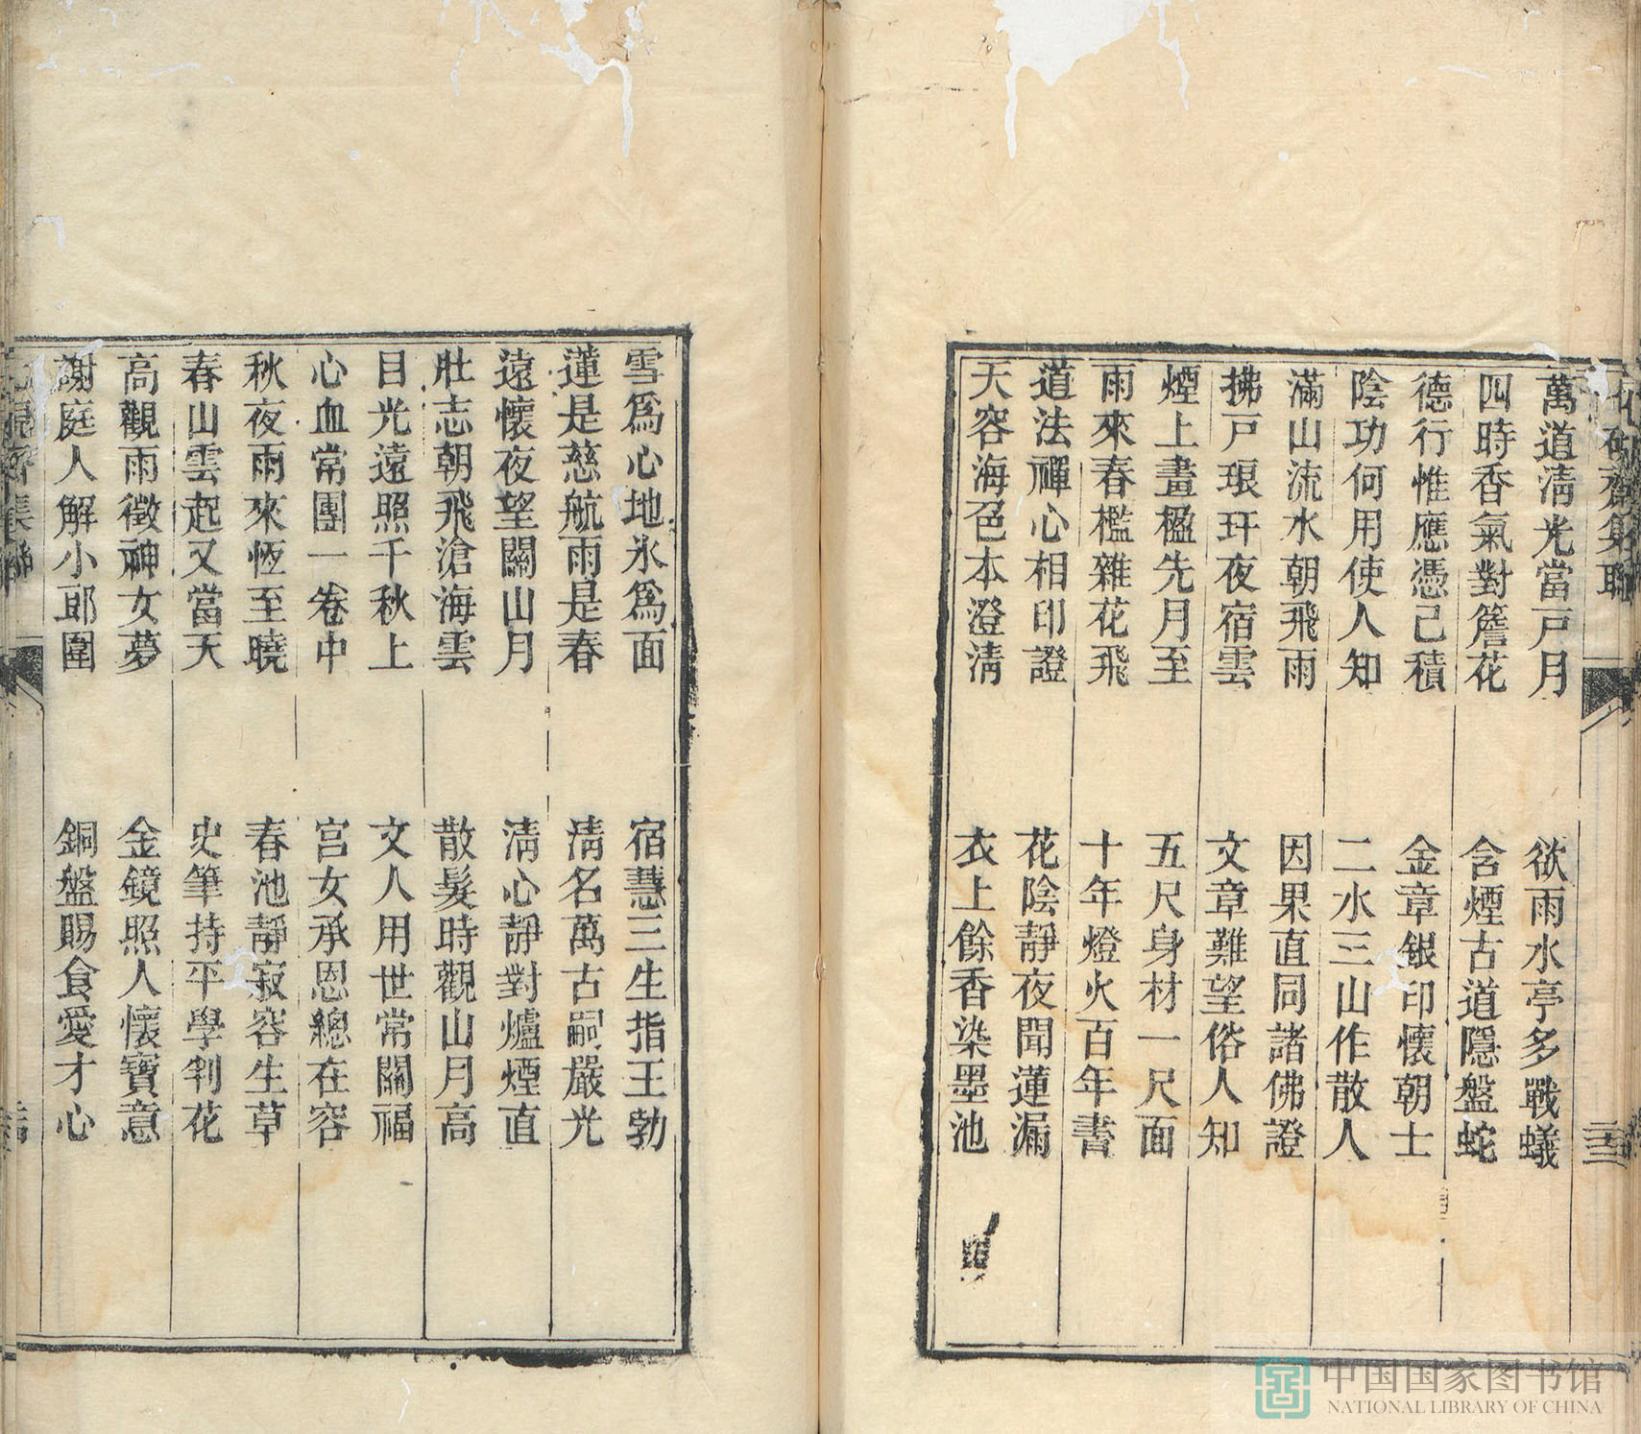 萬道淸光當戸月
欲雨水亭多戰蟻
四時香氣對簷花
含煙古道隱盤蛇
德行惟應憑己積
金章銀印懷朝士
陰功何用使人知
二水三山作散人
滿山流水朝飛雨
因果直同諸佛證
拂戸琅玕夜宿雲
文章難望俗人知
煙上畫楹先月至
五尺身材一尺面
雨來春檻雜花飛
十年燈火百年書
道法禪心相印證
花陰靜夜聞蓮漏
天容海色本澄淸
衣上餘香染墨池
雪爲心地氷爲面
宿慧三生指王勃
蓮是慈航雨是春
淸名萬古嗣嚴光
遠懷夜望關山月
淸心靜對爐煙直
壯志朝飛滄海雲
散髮時觀山月高
目光遠照千秋上
文人用世常關福
心血常團一卷中
宮女承恩總在容
秋夜雨來恆至曉
春池靜寂容生草
春山雲起又當天
史筆持平學判花
高觀雨徵神女夢
金鏡照人懷寶意
謝庭人解小郎圍
銅盤賜食愛才心
中国国家图书馆
NATIONAL LIBRARY OF CHINA